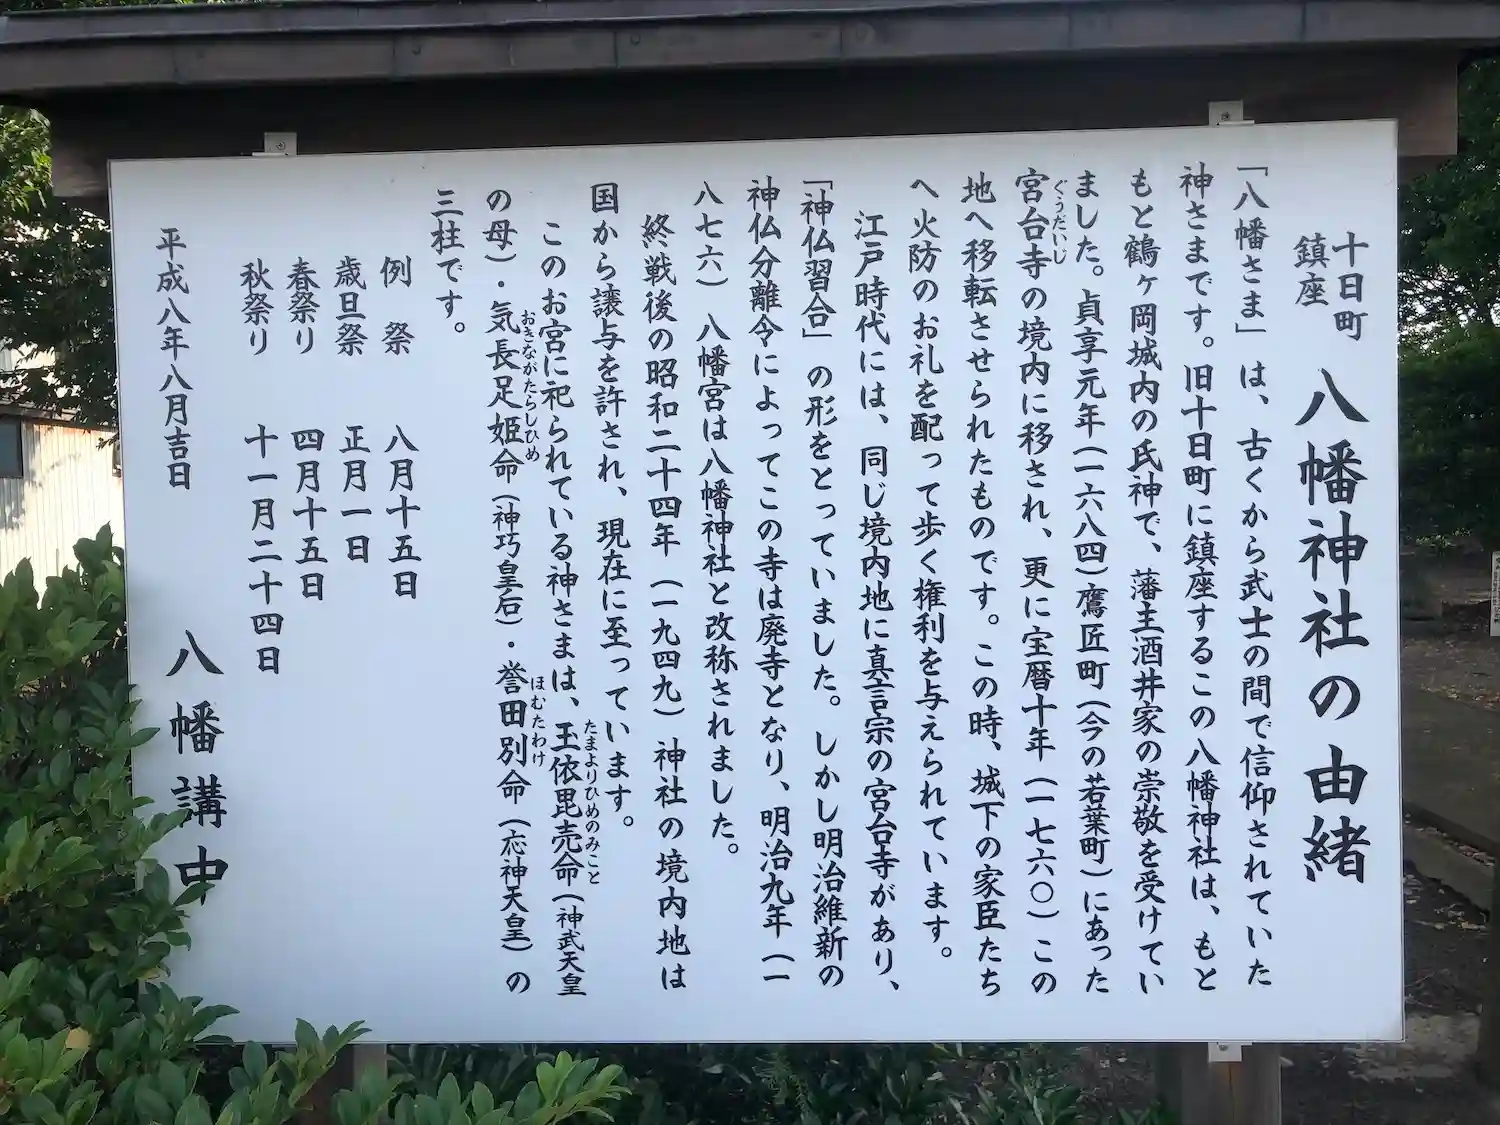 十日町
鎮座
八幡神社の由緒
「八幡さま」は、古くから武士の間で信仰されていた
神さまです。旧十日町に鎮座するこの八幡神社は、もと
もと鶴ヶ岡城内の氏神で、藩主酒井家の崇敬を受けてい
ました。貞享元年(一六八四)鷹匠町(今の若葉町)にあった
宮台寺の境内に移され、更に宝暦十年(一七六〇)この
ぐうだいじ
地へ移転させられたものです。この時、城下の家臣たち
へ火防のお礼を配って歩く権利を与えられています。
江戸時代には、同じ境内地に真言宗の宮台寺があり、
「神仏習合」の形をとっていました。しかし明治維新の
神仏分離令によってこの寺は廃寺となり、明治九年(一
八七六)八幡宮は八幡神社と改称されました。
終戦後の昭和二十四年(一九四九)神社の境内地は
国から譲与を許され、現在に至っています。
このお宮に祀られている神さまは、玉依毘売命(神武天皇
たまよりひめのみこと
の母)・気長足姫命(神巧皇后)・誉田別命(応神天皇)の
おきながたらしひめ
ほむたわけ
三柱です。
例祭 八月十五日
歳旦祭 正月一日
春祭り 四月十五日
秋祭り 十一月二十四日
平成八年八月吉日
八幡講中